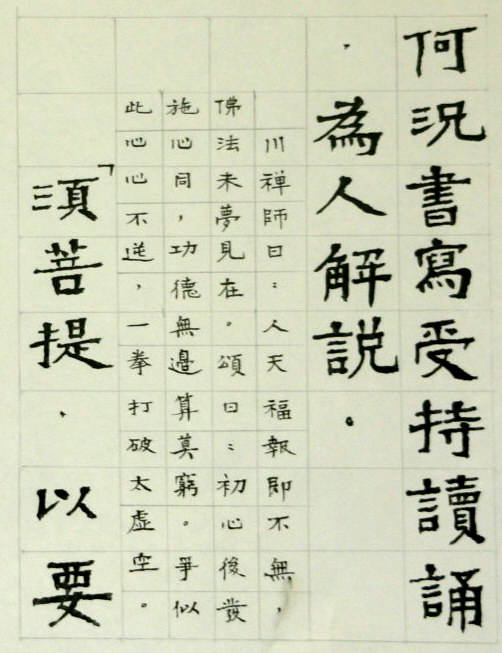 何況書寫受持讀誦
，為人解說。
川禪師曰：人天福報即不無，
佛法未夢見在。頌曰：初心後發
施心同，功德無邊算莫窮。爭似
此心心不逆，一拳打破太虛空。
「須菩提，以要